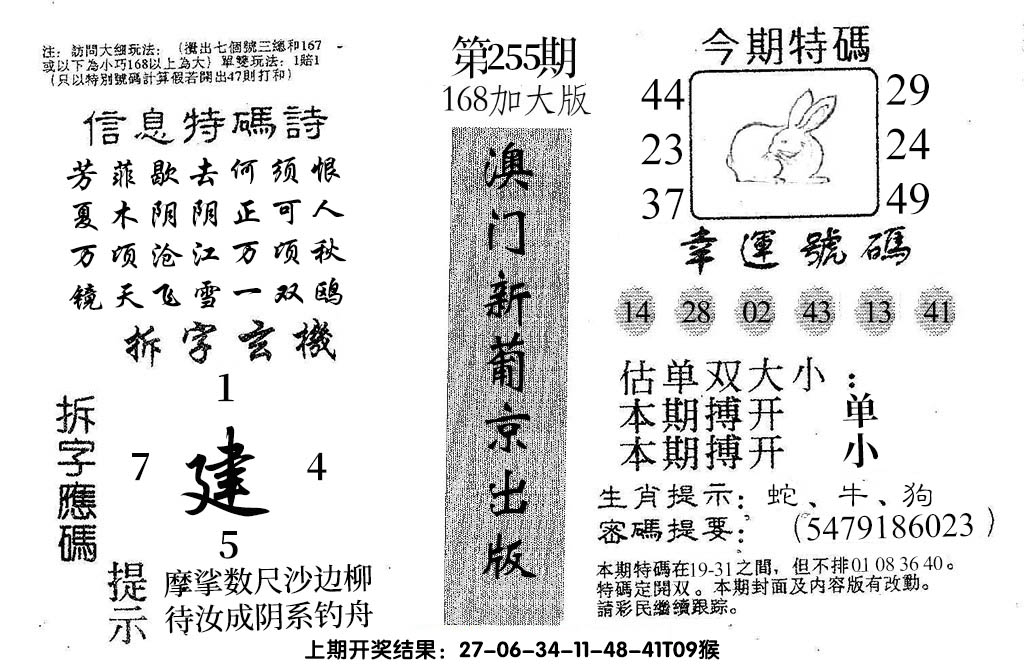 注：訪問大细玩法：（攪出七個號三總和167
或以下為小巧168以上為大）單雙玩法：1賠1
（只以特別號碼計算假若開出47則打和）
信息特碼詩
芳菲歇去何须恨
夏木阴阴正可人
万顷沧江万顷秋
镜天飞雪一双鸥
拆字玄機
拆字應碼
1
7 建 4
5
提示
摩挲数尺沙边柳
待汝成阴系钓舟
第255期
168加大版
澳门新葡京出版
今期特碼
44 29
23 24
37 49
幸運號碼
14 28 02 43 13 41
估单双大小：
本期搏开 单
本期搏开 小
生肖提示：蛇、牛、狗
密碼提要：（5479186023）
本期特碼在19-31之間，但不排01 08 36 40。
特碼定開双。本期封面及内容版有改動。
請彩民繼續跟踪。
上期开奖结果：27-06-34-11-48-41T09猴